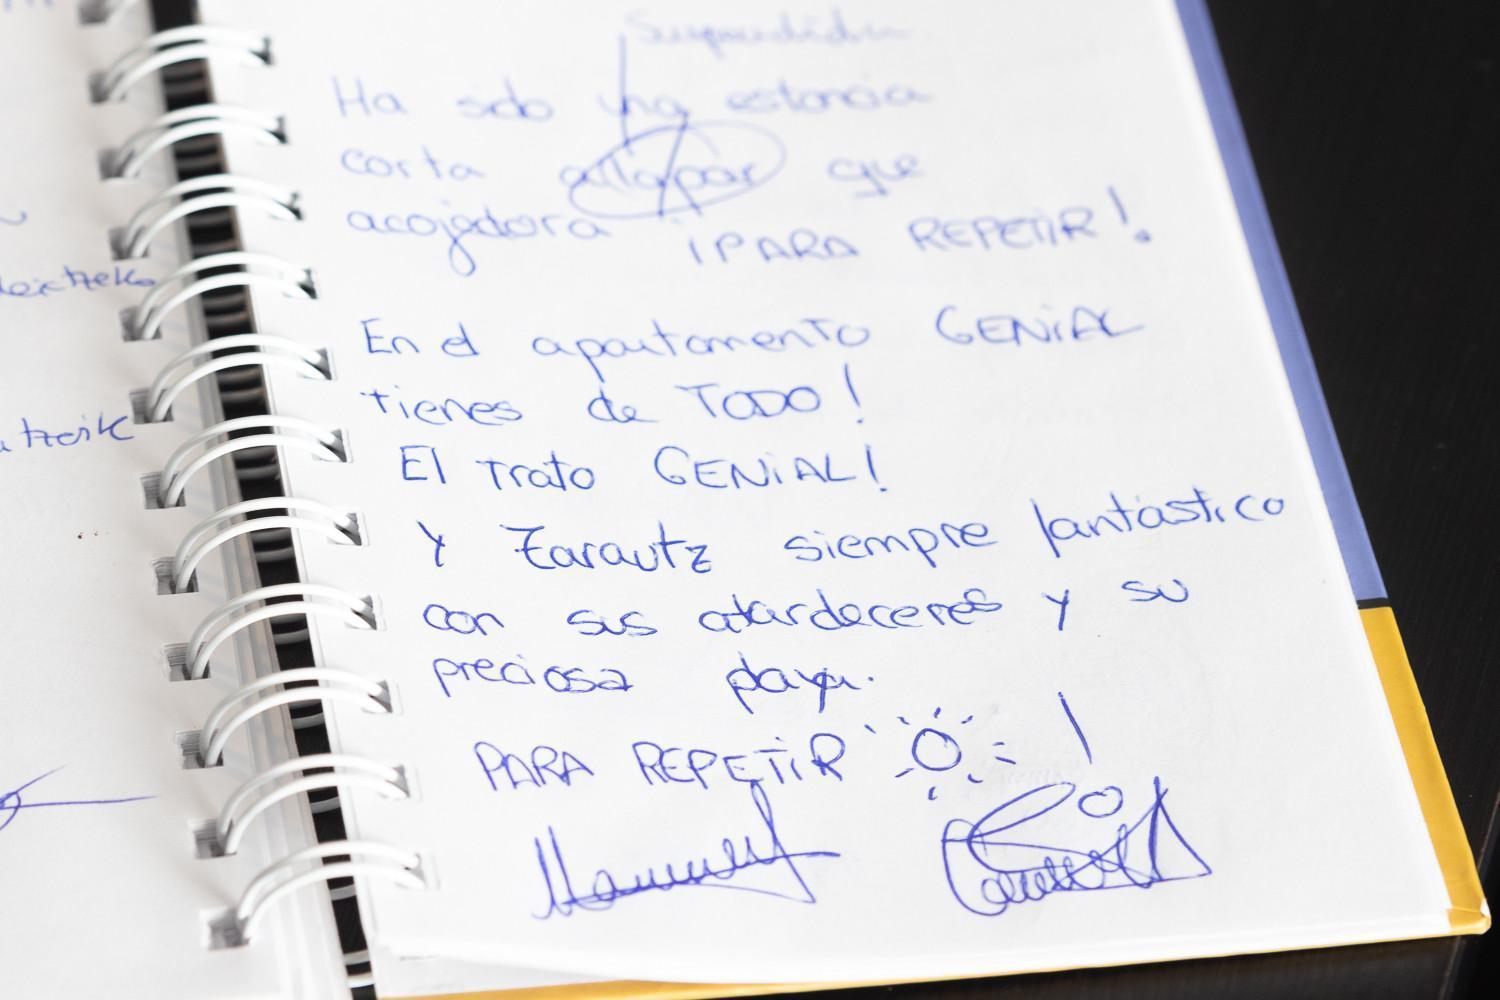 Ha sido una estancia
corta al la par que
acojedora ¡PARA REPETIR!
En el apartamento GENIAL
tienes de TODO!
El trato GENIAL!
Y Zarautz siempre fantástico
con sus atardeceres y su
preciosa playa.
PARA REPETIR !